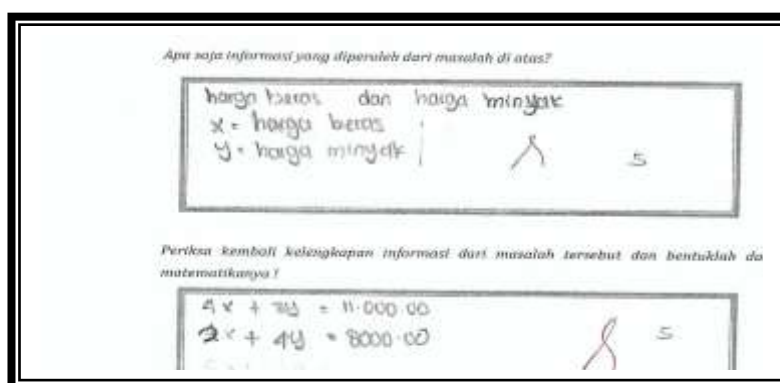 Apa saja informasi yang diperoleh dari masalah di atas?
harga beras dan harga minyak
x = harga beras
y = harga minyak
5
Periksa kembali kelengkapan informasi dari masalah tersebut dan bentuklah da
matematikanya !
4x + y = 11.000.00
2x + 4y = 8000.00
5